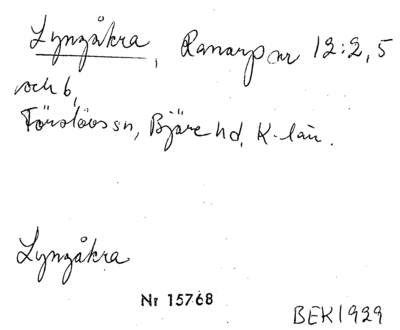 Lyngåkra, Ranarp nr 12:2, 5
och 6,
Förslövs sn, Bjäre hd, K-län.
Lyngåkra
Nr 15768
BEK1929